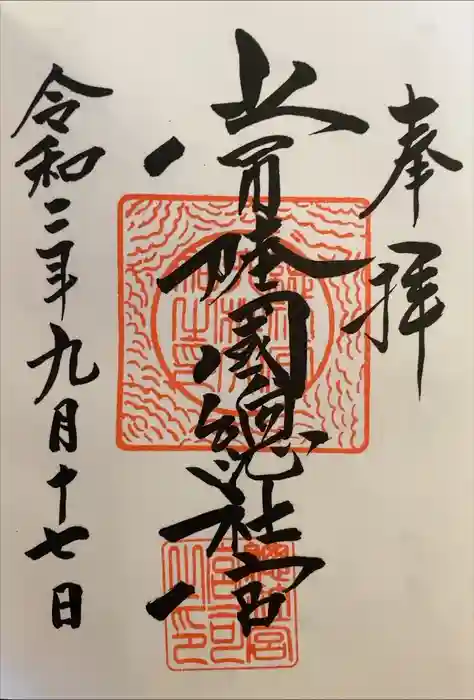 奉拝
常陸國總社宮
令和二年九月十七日